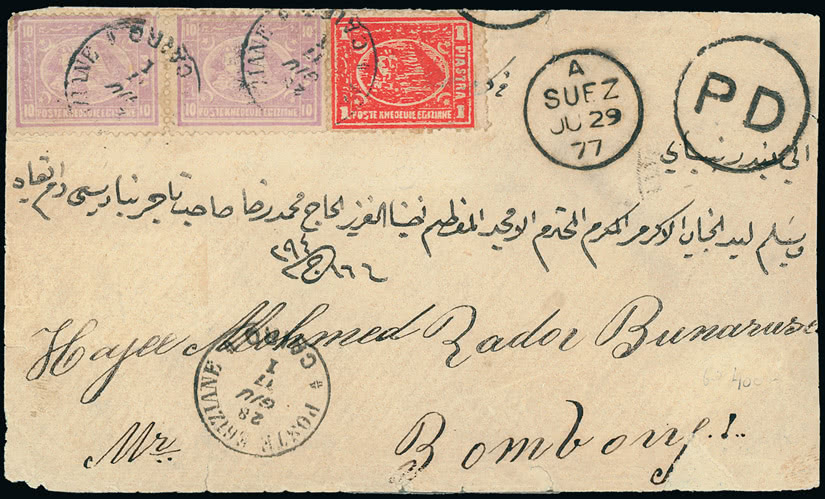 10 10
10 10
POSTE KHEDEUIE EGIZIANE
10 10
10 10
POSTE KHEDEUIE EGIZIANE
PIASTRA
1 1
POSTE KHEDEUIE EGIZIANE
CAIRO
A
SUEZ
JU 29
77
PD
الى بندر بنباي
ويسلم ليد الجناب الاكرم المكرم المحترم الامجد المفخم اخينا العزيز الحاج محمد رضا صاحب تاجر بنارسى دام بقاه
٢٩٤
Hajee Mohmed Rador Bunaruse
POSTE EGIZIANE
CAIRO
28
GIU
77
Mr. Bombony